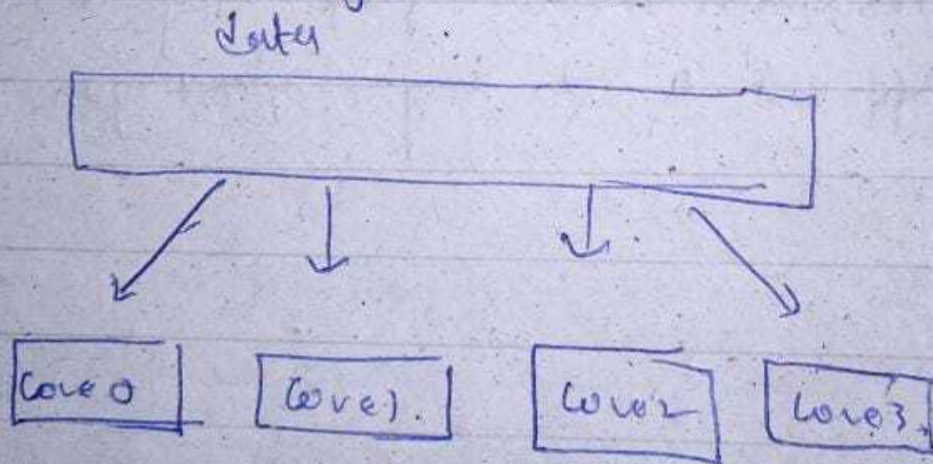 Data
Core 0
Core 1.
Core 2
Core 3.